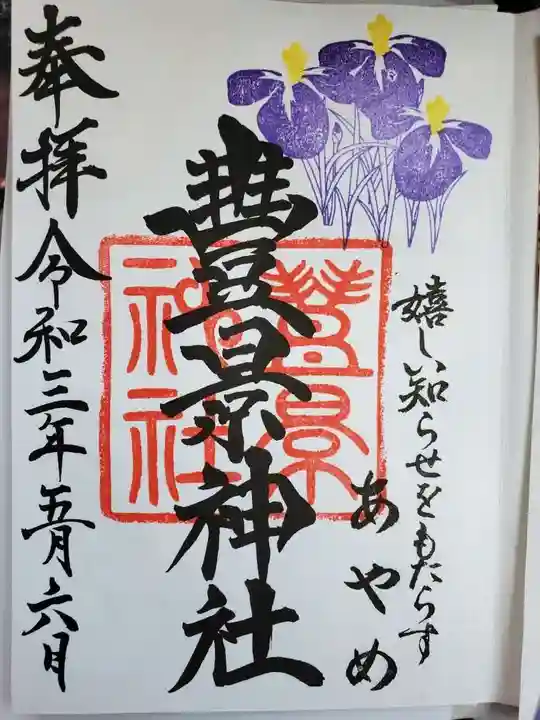 嬉しい知らせをもたらす
あやめ
豊景神社
豊景神社
奉拝令和三年五月六日